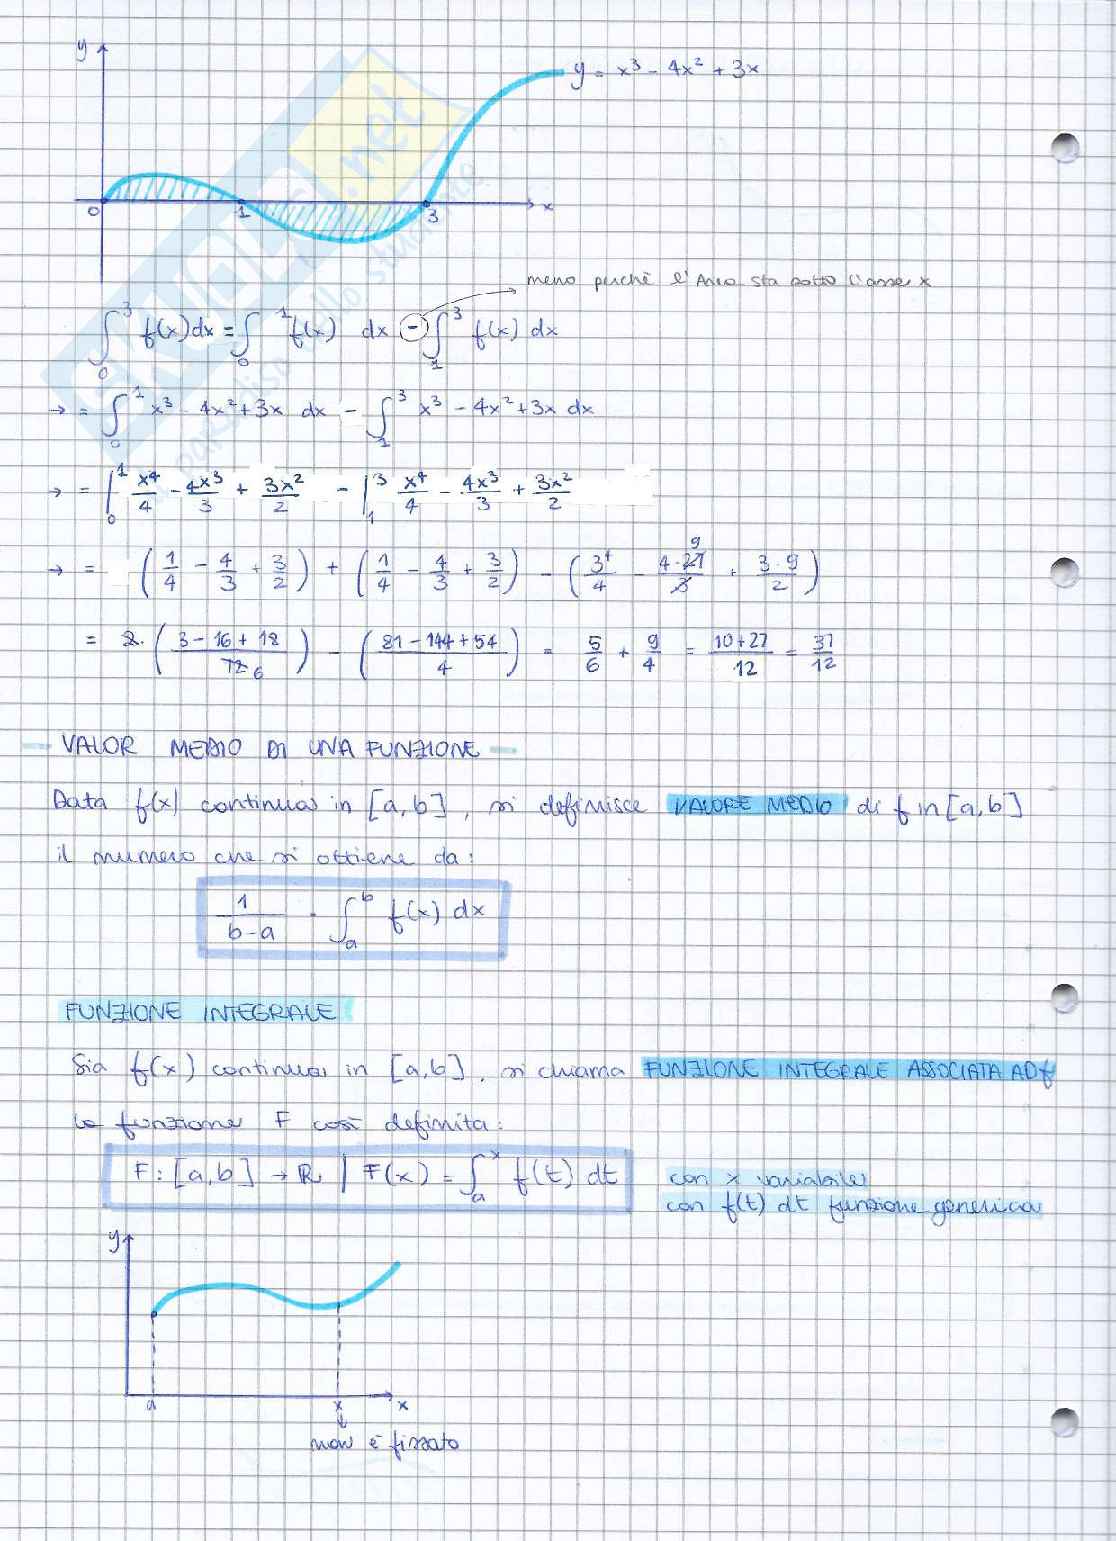 y
y = x³ - 4x² + 3x
0 1 3 x
meno perché l'Area sta sotto l'asse x
∫₀³ f(x)dx = ∫₀¹ f(x) dx - ∫₁³ f(x) dx
→ = ∫₀¹ x³ - 4x² + 3x dx - ∫₁³ x³ - 4x² + 3x dx
→ = |₀¹ x⁴/4 - 4x³/3 + 3x²/2 - |₁³ x⁴/4 - 4x³/3 + 3x²/2
→ = (1/4 - 4/3 + 3/2) + (1/4 - 4/3 + 3/2) - (3⁴/4 - 4·27/3 9 + 3·9/2)
= 2·((3 - 16 + 18)/12 6) - ((81 - 144 + 54)/4) = 5/6 + 9/4 = (10+27)/12 = 37/12
VALOR MEDIO DI UNA FUNZIONE
Data f(x) continua in [a,b], si definisce VALORE MEDIO di f in [a,b]
il numero che si ottiene da:
1/(b-a) · ∫ₐᵇ f(x) dx
FUNZIONE INTEGRALE
Sia f(x) continua in [a,b], si chiama FUNZIONE INTEGRALE ASSOCIATA AD f
la funzione F così definita:
F: [a,b] → ℝ | F(x) = ∫ₐˣ f(t) dt
con x variabile
con f(t) dt funzione generica
y
a x x
non è fissato
SKUOLA.net